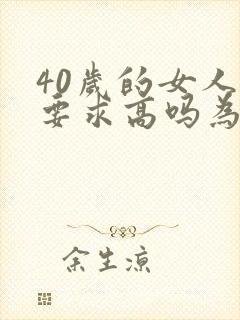 40歲的女人
要求高吗為
余生凉